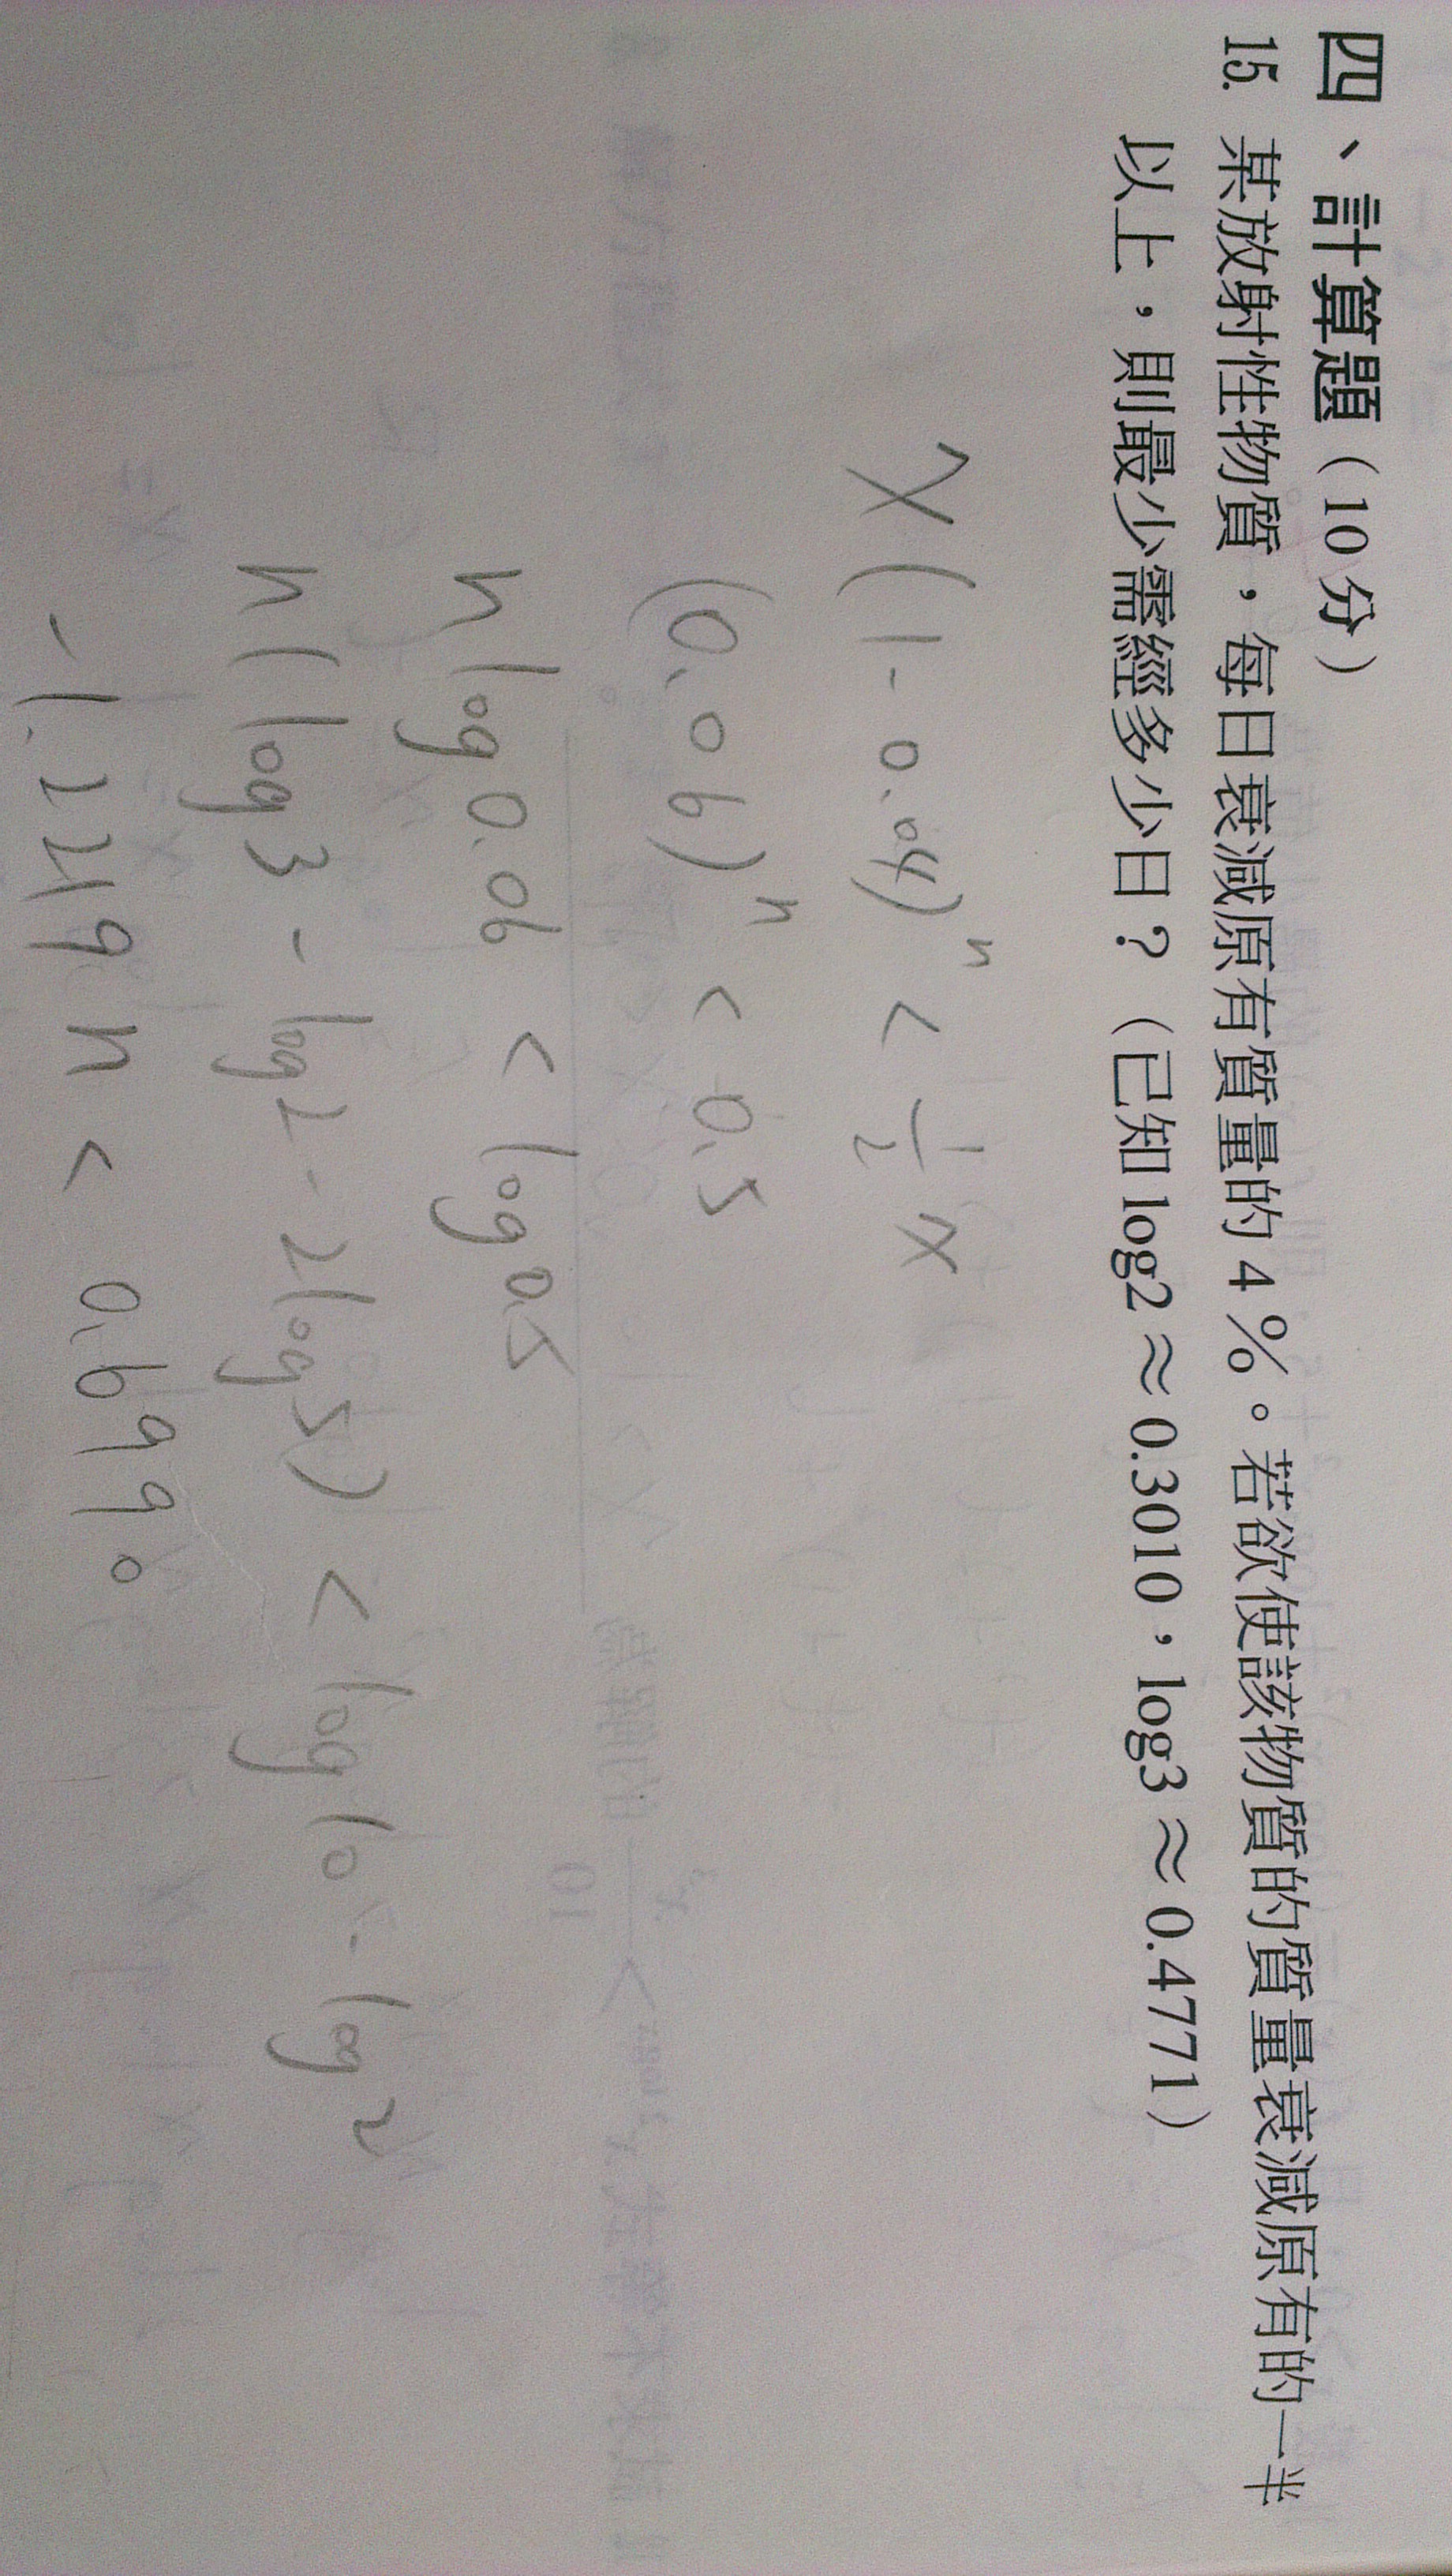 四、計算題（10分）
15. 某放射性物質，每日衰減原有質量的 4 %。若欲使該物質的質量衰減原有的一半
以上，則最少需經多少日？（已知 log2 ≈ 0.3010，log3 ≈ 0.4771）
x(1-0.04)^n < 1/2 x
(0.06)^n < 0.5
n log 0.06 < log 0.5
n(log3 - log2 - 2log5) < log10 - log2
-1.2219n < 0.6990